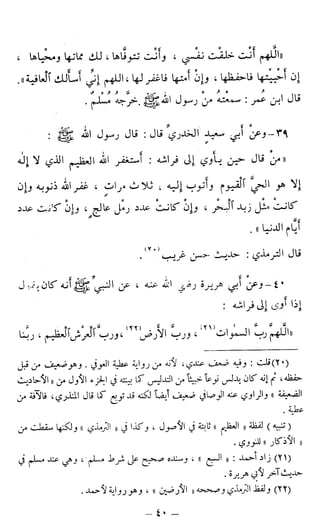 «اللهم أنت خلقت نفسي ، وأنت تتوفاها ، لك مماتها ومحياها ،
إن أحييتها فاحفظها ، وإن أمتها فاغفر لها ، اللهم إني أسألك العافية» .
قال ابن عمر : سمعته من رسول الله ﷺ . خرجه مسلم .
٣٩ - وعن أبي سعيد الخدري قال : قال رسول الله ﷺ :
« من قال حين يأوي إلى فراشه : أستغفر الله العظيم الذي لا إله
إلا هو الحي القيوم وأتوب إليه ، ثلاث مرات ، غفر الله ذنوبه وإن
كانت مثل زبد البحر ، وإن كانت عدد رمل عالج ، وإن كانت عدد
أيام الدنيا » .
قال الترمذي : حديث حسن غريب (٢٠) .
٤٠ - وعن أبي هريرة رضي الله عنه ، عن النبي ﷺ أنه كان يقول
إذا أوى إلى فراشه :
«اللهم رب السموات (٢١) ، ورب الأرض (٢٢) ، ورب العرش العظيم ، ربنا
(٢٠) قلت : وفيه ضعف عندي ، لأنه من رواية عطية العوفي . وهو ضعيف من قبل
حفظه ، ثم إنه كان يدلس نوعاً خبيثاً من التدليس كما بينته في الجزء الأول من « الأحاديث
الضعيفة » والراوي عنه الوصافي ضعيف أيضاً لكنه قد توبع كما قال المنذري ، فالآفة من
عطية .
( تنبيه ) لفظة « العظيم » ثابتة في الأصول ، وكذا في « الترمذي » ولكنها سقطت من
« الأذكار » للنووي .
(٢١) زاد أحمد : « السبع » ، وسنده صحيح على شرط مسلم ، وهي عند مسلم في
حديث آخر لأبي هريرة .
(٢٢) ولفظ الترمذي وصححه « الأرضين » ، وهو رواية لأحمد .
- ٤٠ -